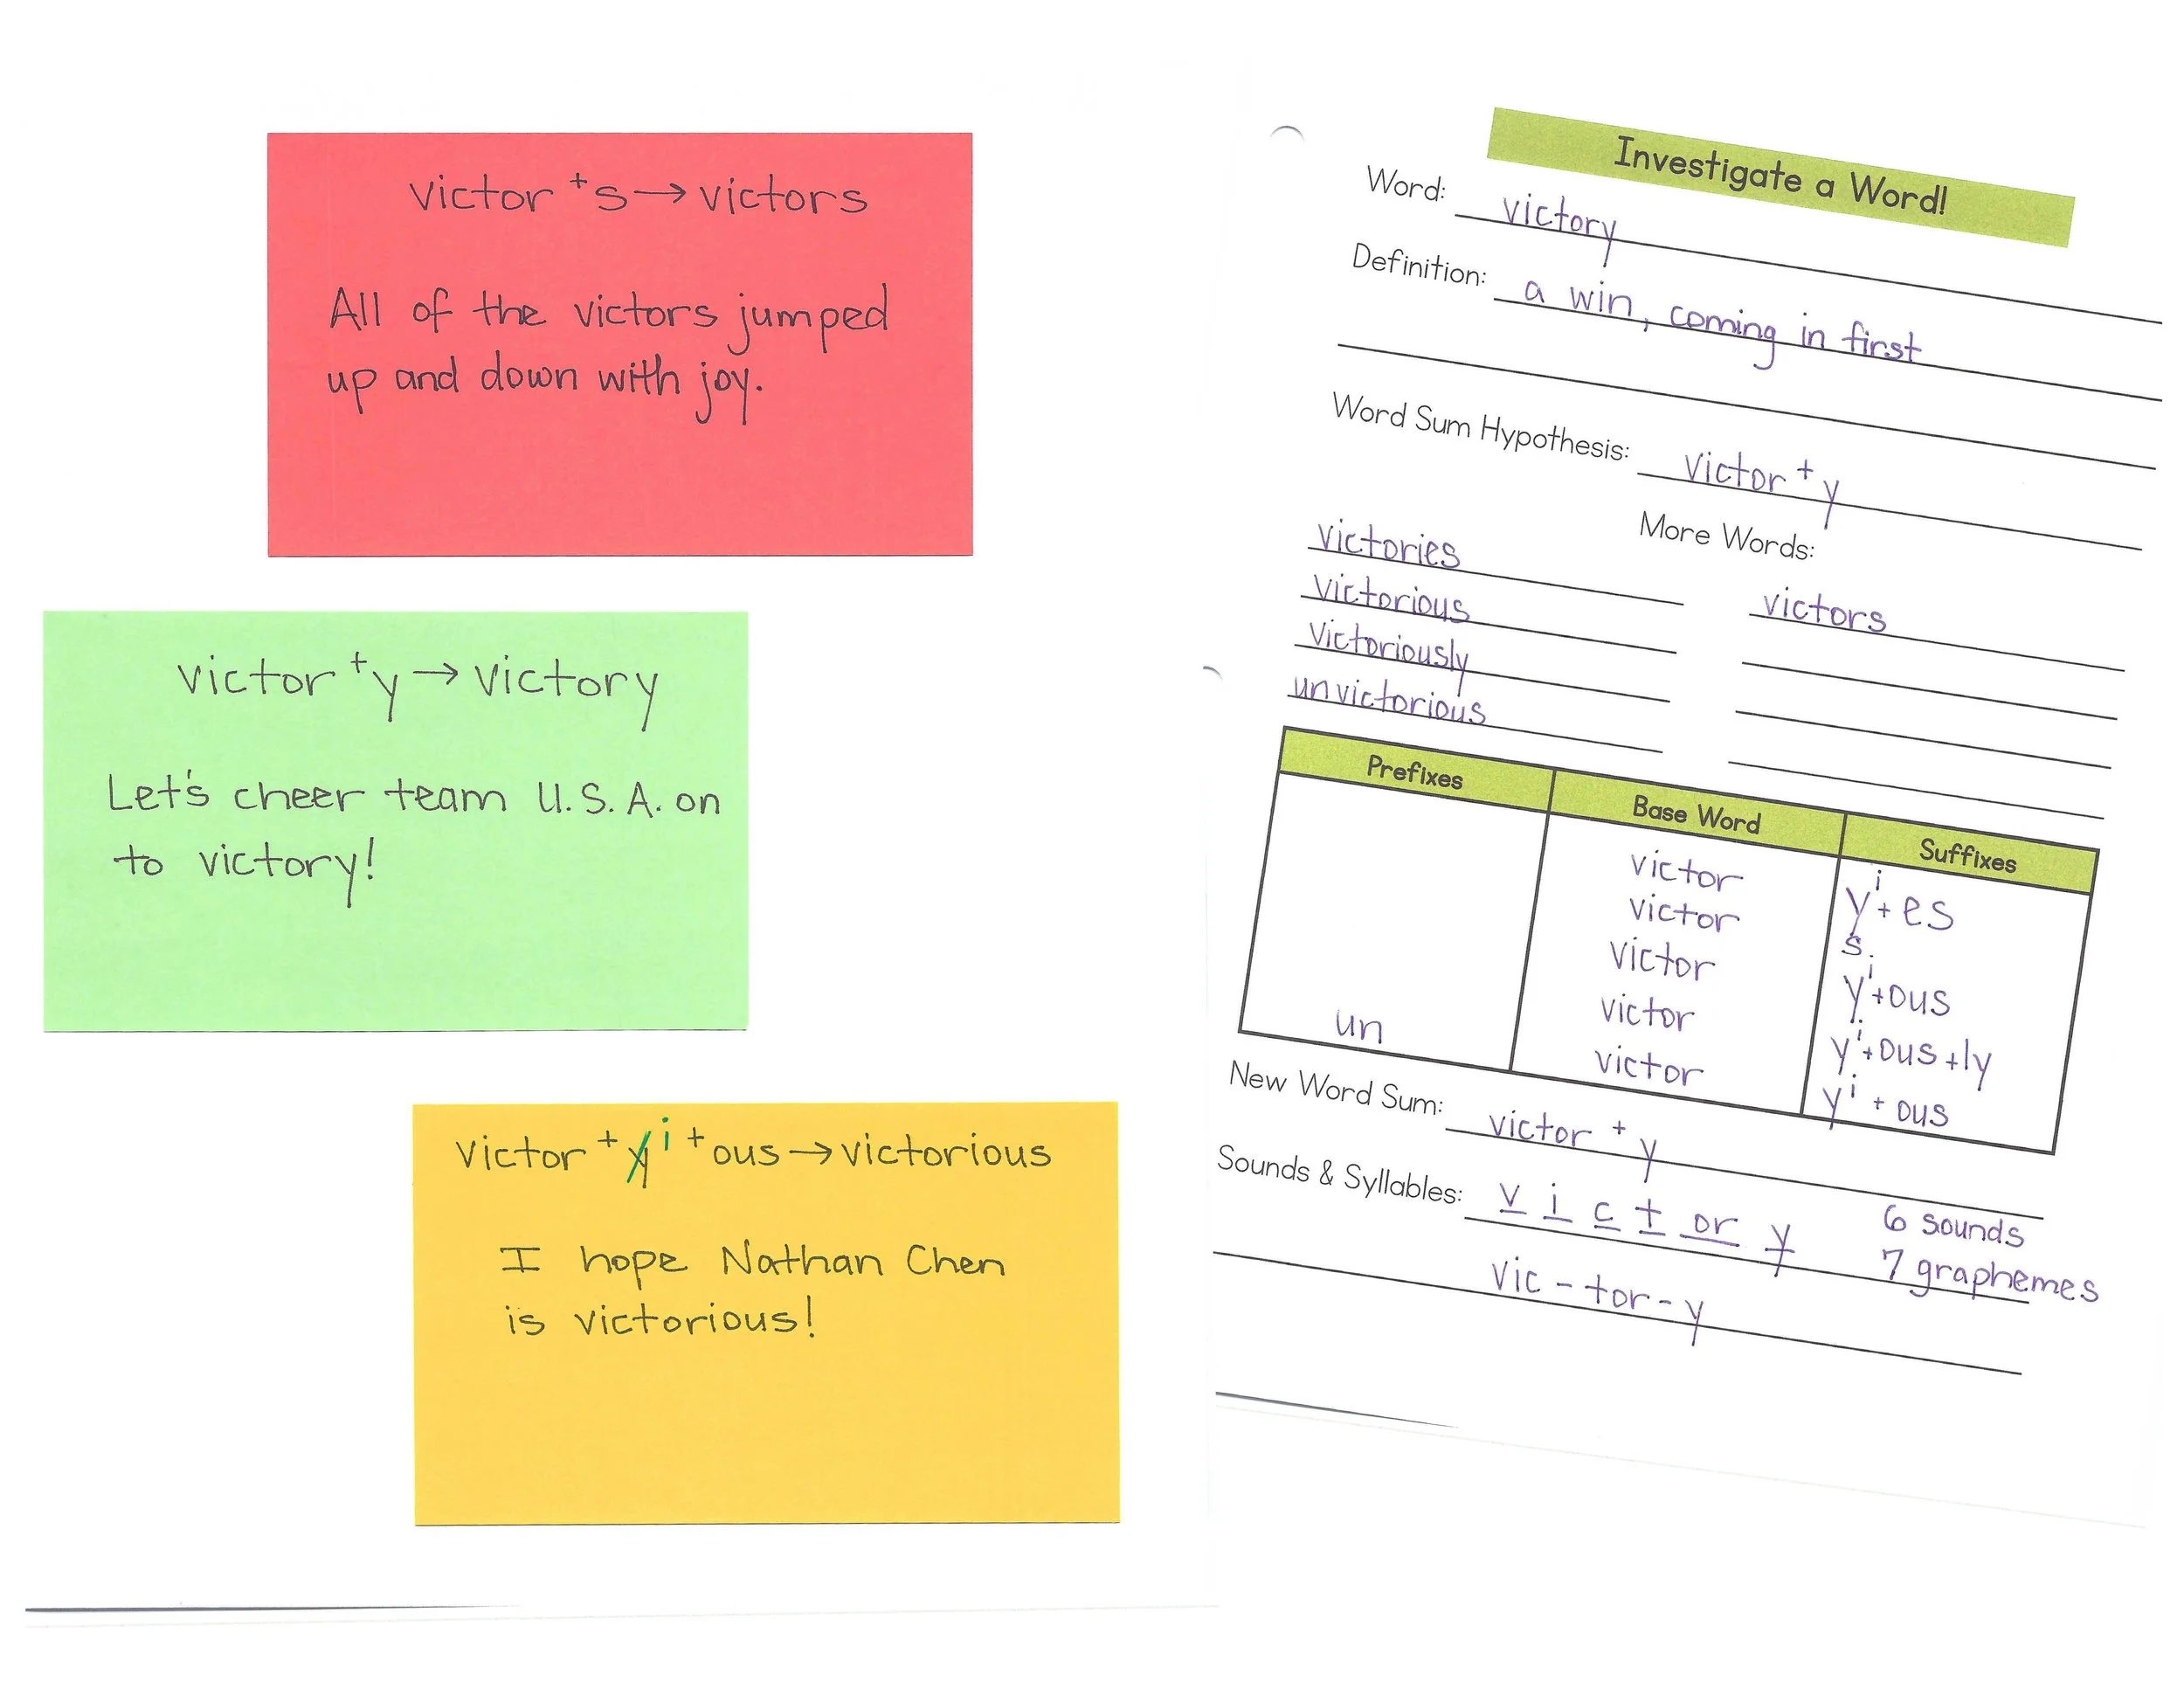 victor + s → victors
All of the victors jumped
up and down with joy.
victor + y → victory
Let's cheer team U.S.A. on
to victory!
victor + y i + ous → victorious
I hope Nathan Chen
is victorious!
Investigate a Word!
Word: victory
Definition: a win, coming in first
Word Sum Hypothesis: victor + y
More Words:
victories
victorious
victoriously
unvictorious
victors
Prefixes Base Word Suffixes
victor y i + es
victor s
victor y i + ous
victor y i + ous + ly
un victor y i + ous
New Word Sum: victor + y
Sounds & Syllables: v i c t or y 6 sounds
7 graphemes
vic - tor - y